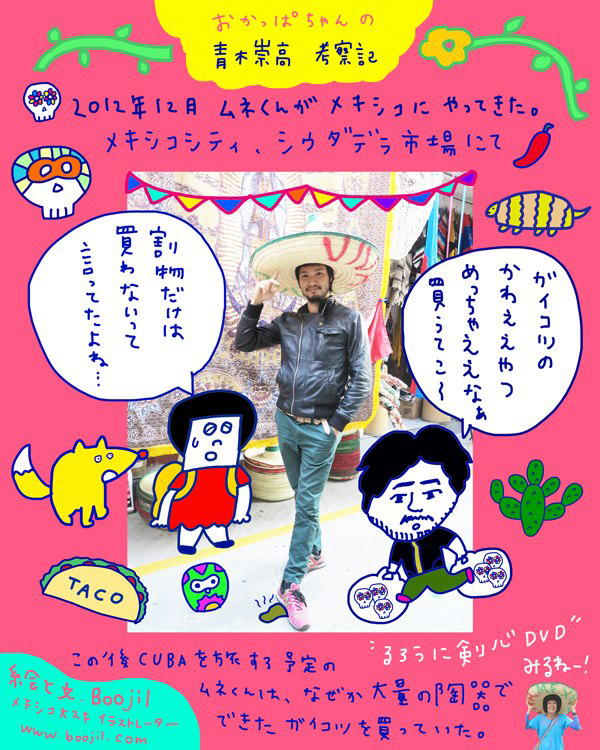 おかっぱちゃんの
青木崇高 考察記
2012年12月 ムネくんが メキシコに やってきた。
メキシコシティ、シウダデラ市場にて
割物だけは
買わないって
言ってたよね…
ガイコツの
かわええやつ
めっちゃええなぁ
買うてこ〜
VIVA
TACO
この後CUBAを旅する予定の
ムネくんは、なぜか大量の陶器で
できたガイコツを買っていた。
"るろうに剣心DVD"
みるねー!
絵と文.Boojil
メキシコ大スキ イラストレーター
www.boojil.com